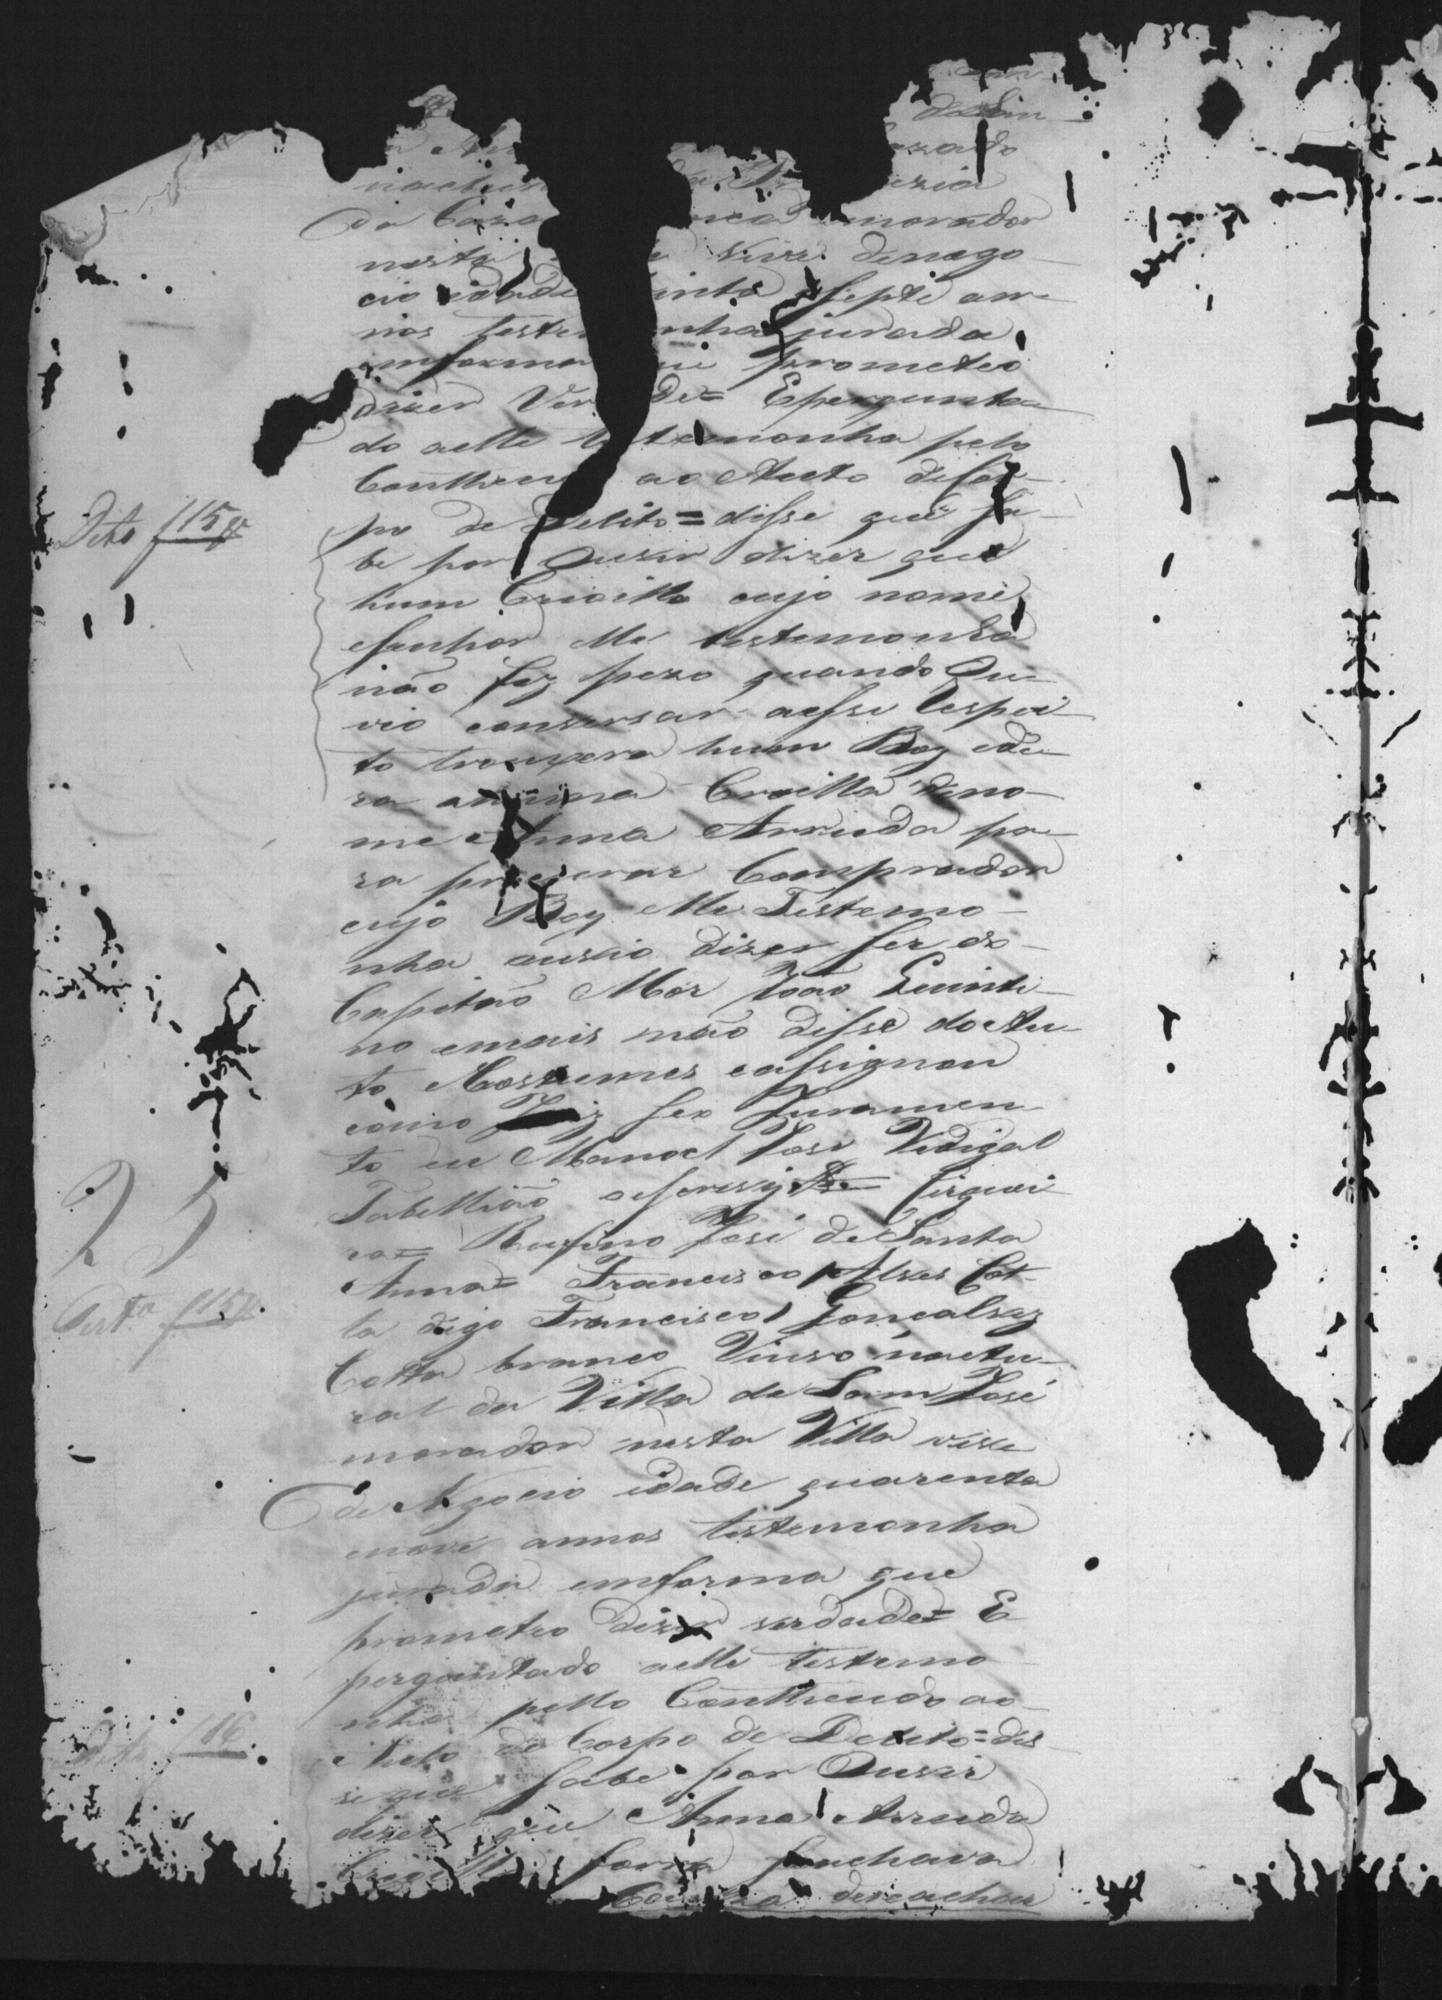 de Sam
zado
da Caza morador
nesta vive denego
cio idade enta esepte an
nos testemunha jurada
emforma que prometeo
dizer Verdade = Epergunta
do aelle testemonha pelo
Contheudo ao Auto deCor
po de Delito = disse que Sa
be por Ouvir dizer que
hum Crioillo cujo nome
eSenhor elle testemonha
não fez pezo quando Ou
vio conversar aesse Respei
to trouxera hum Boy ede
ra Croilla deno
me Anna Arruda pa
ra procurar Comprador
cujo Boy elle Testemo
nha ouvio dizer Ser do
Capitão Mor João Quinti
no emais não disse doAu
to eCostumes eassignou
como Juiz seo Juramen
to eu Manoel José Vedigal
Tabellião oescrevy Cirquei
ra = Rufino José deSanta
Anna = Francisco Alves Cot
ta digo Francisco Goncalvez
Cotta branco Viuvo nactu
ral da Villa de Sam José
morador nesta Villa vive
de Negocio idade quarenta
enove annos testemonha
jurada emforma que
prometeo dizer verdade = E
perguntado aelle testemo
nha pello Contheudo ao
Auto do Corpo de Deleto = dis
se que Sabe por Ouvir
dizer que Anna Arruda
Crioilla forra Seachava
deseachou
Dito f 15
25
Test.ª f 15
Dito f 16